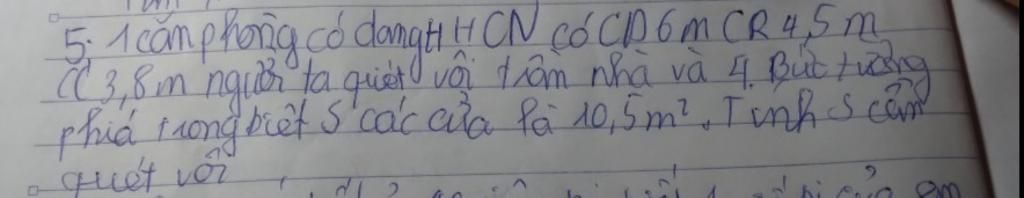 5. 1 căn phòng có dạng H HCN có CD 6m CR 4,5 m
CC 3,8m người ta quét vôi trần nhà và 4 Bức tường
phía trong biết S các cửa là 10,5m². Tính S cần
quét vôi